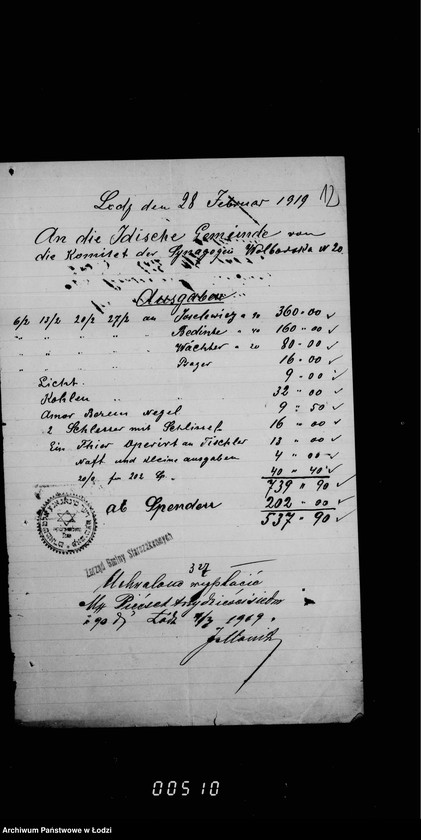 Lodz den 28 Februar 1919 12
An die Idische Gemeinde von
die Komitet der Synagogie Wolborska N 20
Ausgaben
6/2 13/2 20/2 27/2 an Joselewicz a 90 360.00
" " " " Bedinte " 40 160.00
" " " " Wächter " 20 80.00
" " " " 16.00
Licht 9.00
Kohlen " " 32.00
Negel 9.50
2 Schlesser mit Schlissel 16.00
Ein Thier Operirt an Tischler 13.00
Naft und kleine ausgaben 4.00
20/2 fur 202 40.40
739.90
ab Spenden 202.00
537.90
Zarząd Gminy Starozakonnych
Uchwalono wypłacić
Mk Pięćset trzydzieści siedm
i 90 Łódź 1919
00510
Archiwum Państwowe w Łodzi